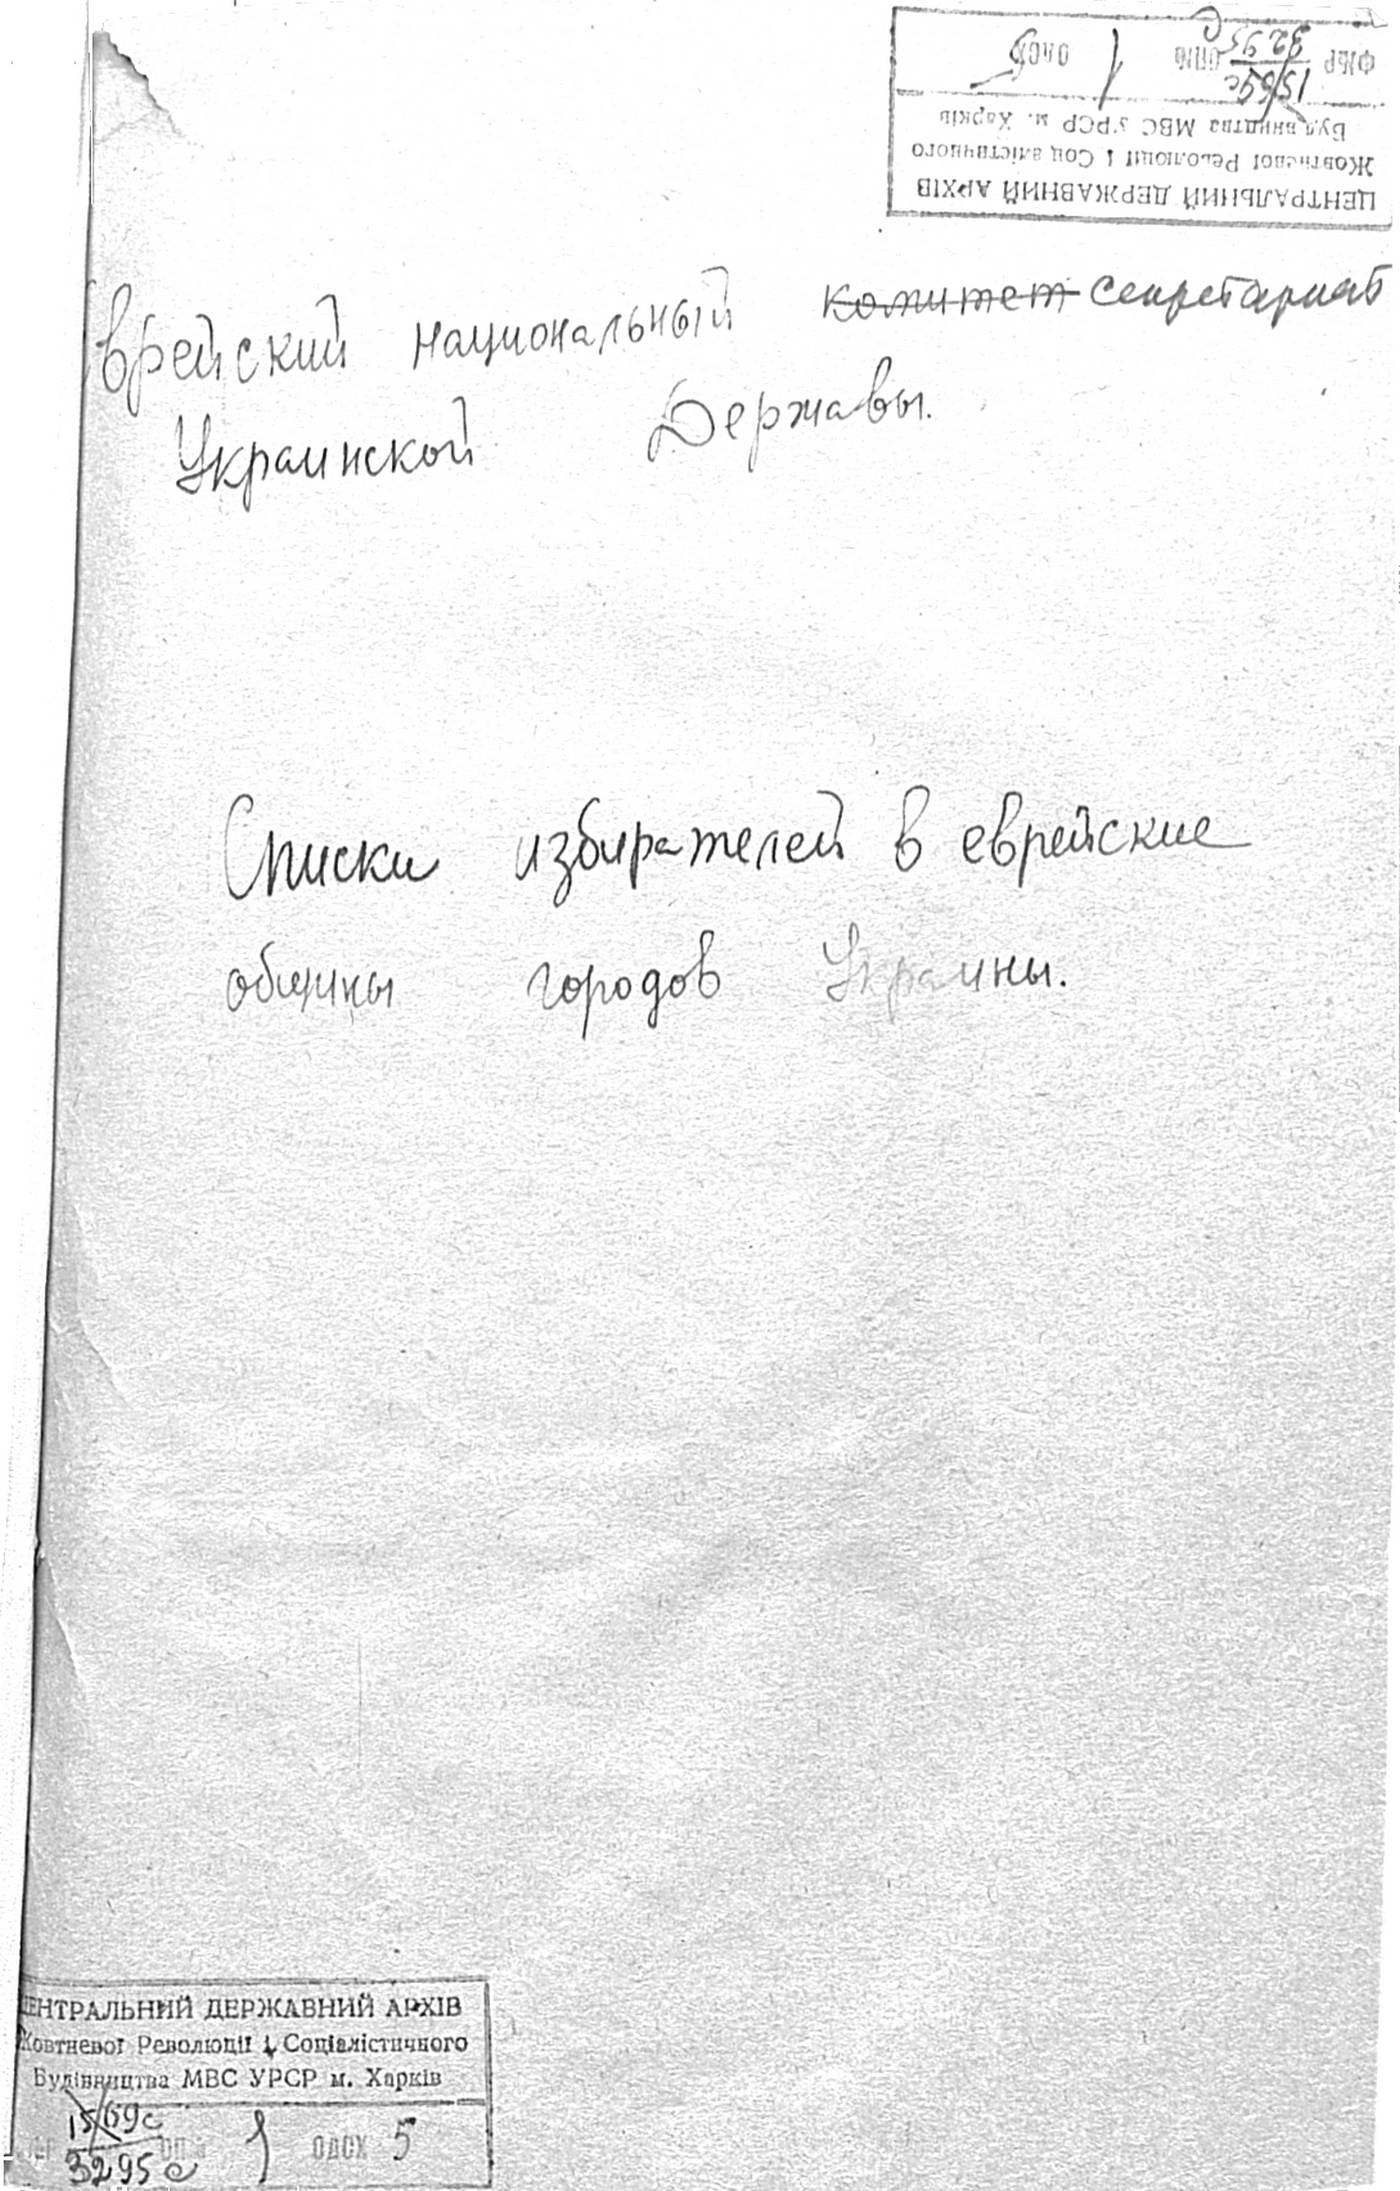 ЦЕНТРАЛЬНИЙ ДЕРЖАВНИЙ АРХІВ
Жовтневої Революції і Соціалістичного
Будівництва МВС УРСР м. Харків
ФНР 1569с 3295 с ОПИС 1 ОДСХ 5
Еврейский национальный комитет секретариат
Украинской Державы.
Списки избирателей в еврейские
общины городов Украины.
ЦЕНТРАЛЬНИЙ ДЕРЖАВНИЙ АРХІВ
Жовтневої Революції і Соціалістичного
Будівництва МВС УРСР м. Харків
1569с
3295 с 1 ОДСХ 5